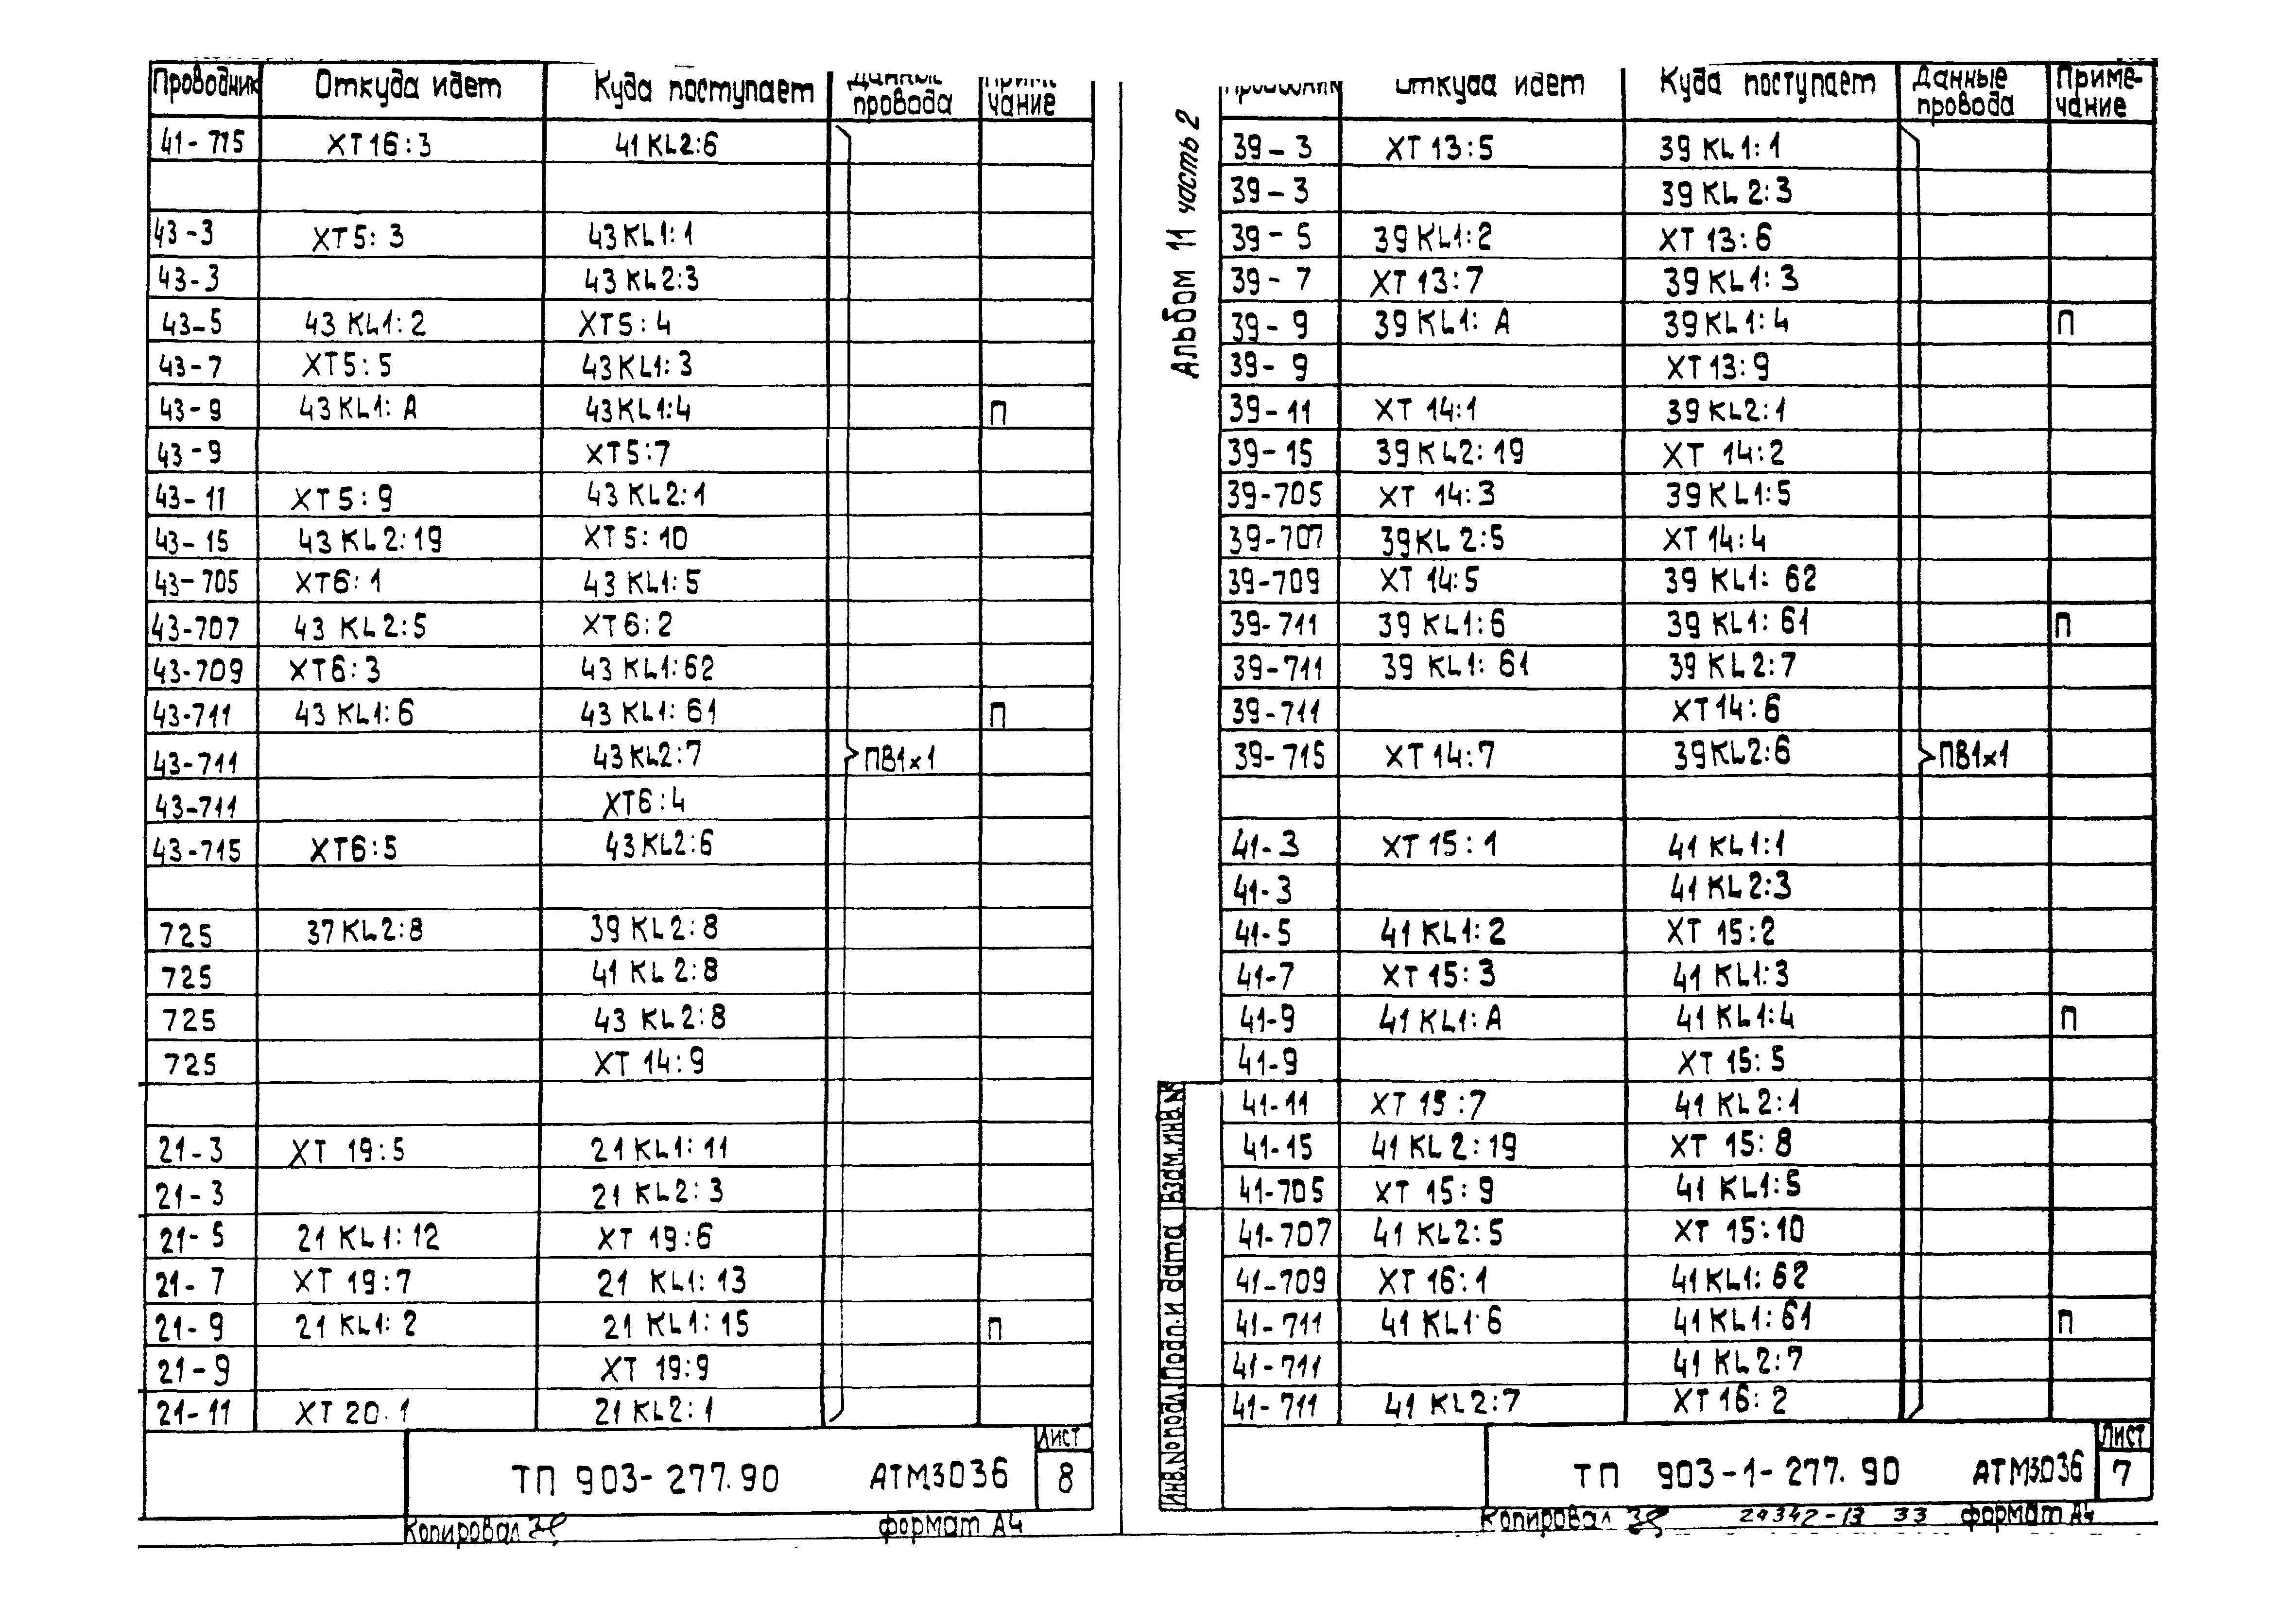 Проводник Откуда идет Куда поступает Данные провода Приме- чание
41-715 XT16:3 41KL2:6
43-3 XT5:3 43KL1:1
43-3 43KL2:3
43-5 43KL1:2 XT5:4
43-7 XT5:5 43KL1:3
43-9 43KL1:A 43KL1:4 П
43-9 XT5:7
43-11 XT5:9 43KL2:1
43-15 43KL2:19 XT5:10
43-705 XT6:1 43KL1:5
43-707 43KL2:5 XT6:2
43-709 XT6:3 43KL1:62
43-711 43KL1:6 43KL1:61 П
43-711 43KL2:7 ПВ1х1
43-711 XT6:4
43-715 XT6:5 43KL2:6
725 37KL2:8 39KL2:8
725 41KL2:8
725 43KL2:8
725 XT14:9
21-3 XT19:5 21KL1:11
21-3 21KL2:3
21-5 21KL1:12 XT19:6
21-7 XT19:7 21KL1:13
21-9 21KL1:2 21KL1:15 П
21-9 XT19:9
21-11 XT20.1 21KL2:1
ТП 903-277.90 АТМ3036 Лист 8
Копировал формат А4
Альбом 11 часть 2
Проводник Откуда идет Куда поступает Данные провода Приме- чание
39-3 XT13:5 39KL1:1
39-3 39KL2:3
39-5 39KL1:2 XT13:6
39-7 XT13:7 39KL1:3
39-9 39KL1:A 39KL1:4 П
39-9 XT13:9
39-11 XT14:1 39KL2:1
39-15 39KL2:19 XT14:2
39-705 XT14:3 39KL1:5
39-707 39KL2:5 XT14:4
39-709 XT14:5 39KL1:62
39-711 39KL1:6 39KL1:61 П
39-711 39KL1:61 39KL2:7
39-711 XT14:6
39-715 XT14:7 39KL2:6 ПВ1х1
41-3 XT15:1 41KL1:1
41-3 41KL2:3
41-5 41KL1:2 XT15:2
41-7 XT15:3 41KL1:3
41-9 41KL1:A 41KL1:4 П
41-9 XT15:5
41-11 XT15:7 41KL2:1
41-15 41KL2:19 XT15:8
41-705 XT15:9 41KL1:5
41-707 41KL2:5 XT15:10
41-709 XT16:1 41KL1:62
41-711 41KL1·6 41KL1:61 П
41-711 41KL2:7
41-711 41KL2:7 XT16:2
Инв.№подл. Подп.и дата Взам.инв.№
ТП 903-1-277.90 АТМ3.036 Лист 7
Копировал 24342-13 33 формат А4